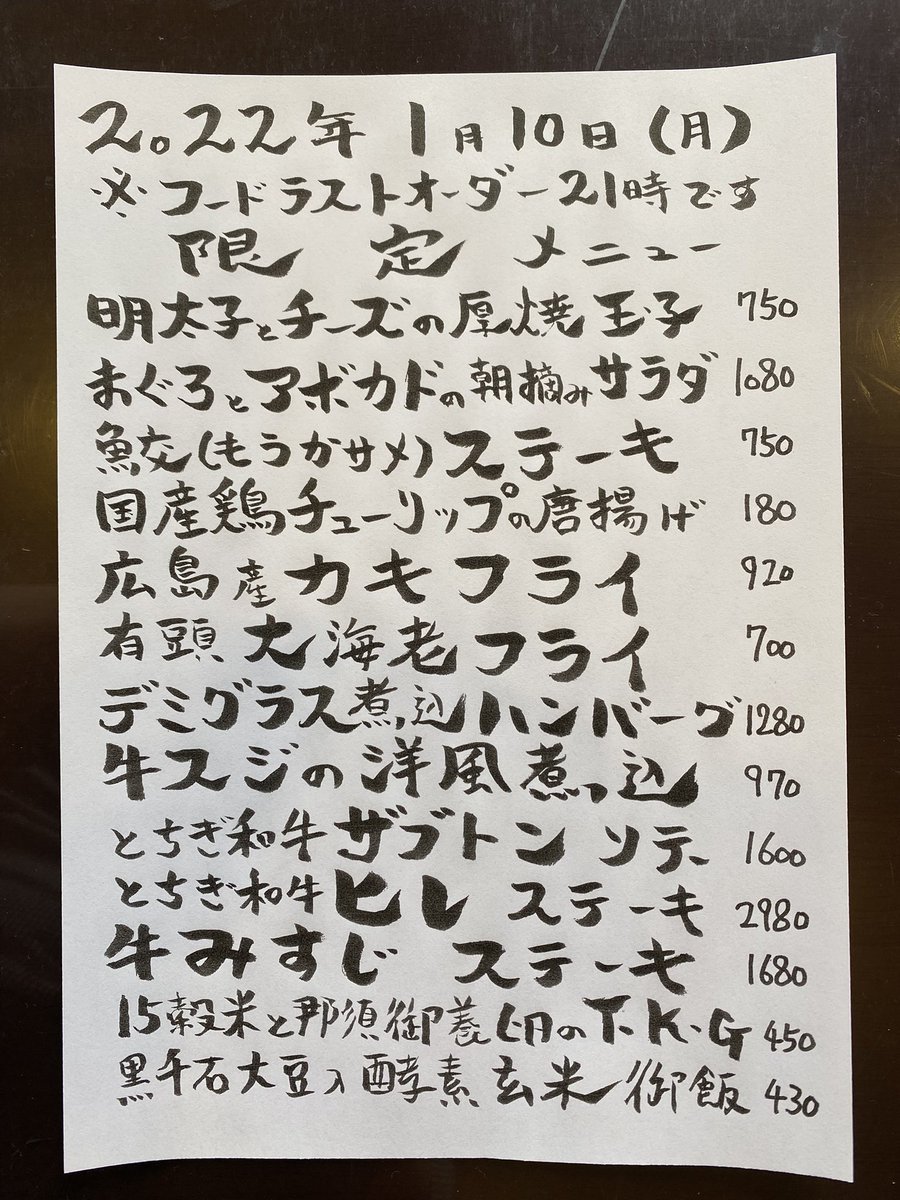 2022年 1月10日(月)
※フードラストオーダー21時です
限定メニュー
明太子とチーズの厚焼玉子 750
まぐろとアボカドの朝摘みサラダ 1080
鮫(もうかサメ)ステーキ 750
国産鶏チューリップの唐揚げ 180
広島産カキフライ 920
有頭大海老フライ 700
デミグラス煮込ハンバーグ 1280
牛スジの洋風煮込 970
とちぎ和牛ザブトン ソテー 1600
とちぎ和牛ヒレ ステーキ 2980
牛みすじ ステーキ 1680
15穀米と那須御養卵のT.K.G 450
黒千石大豆入酵素玄米御飯 430